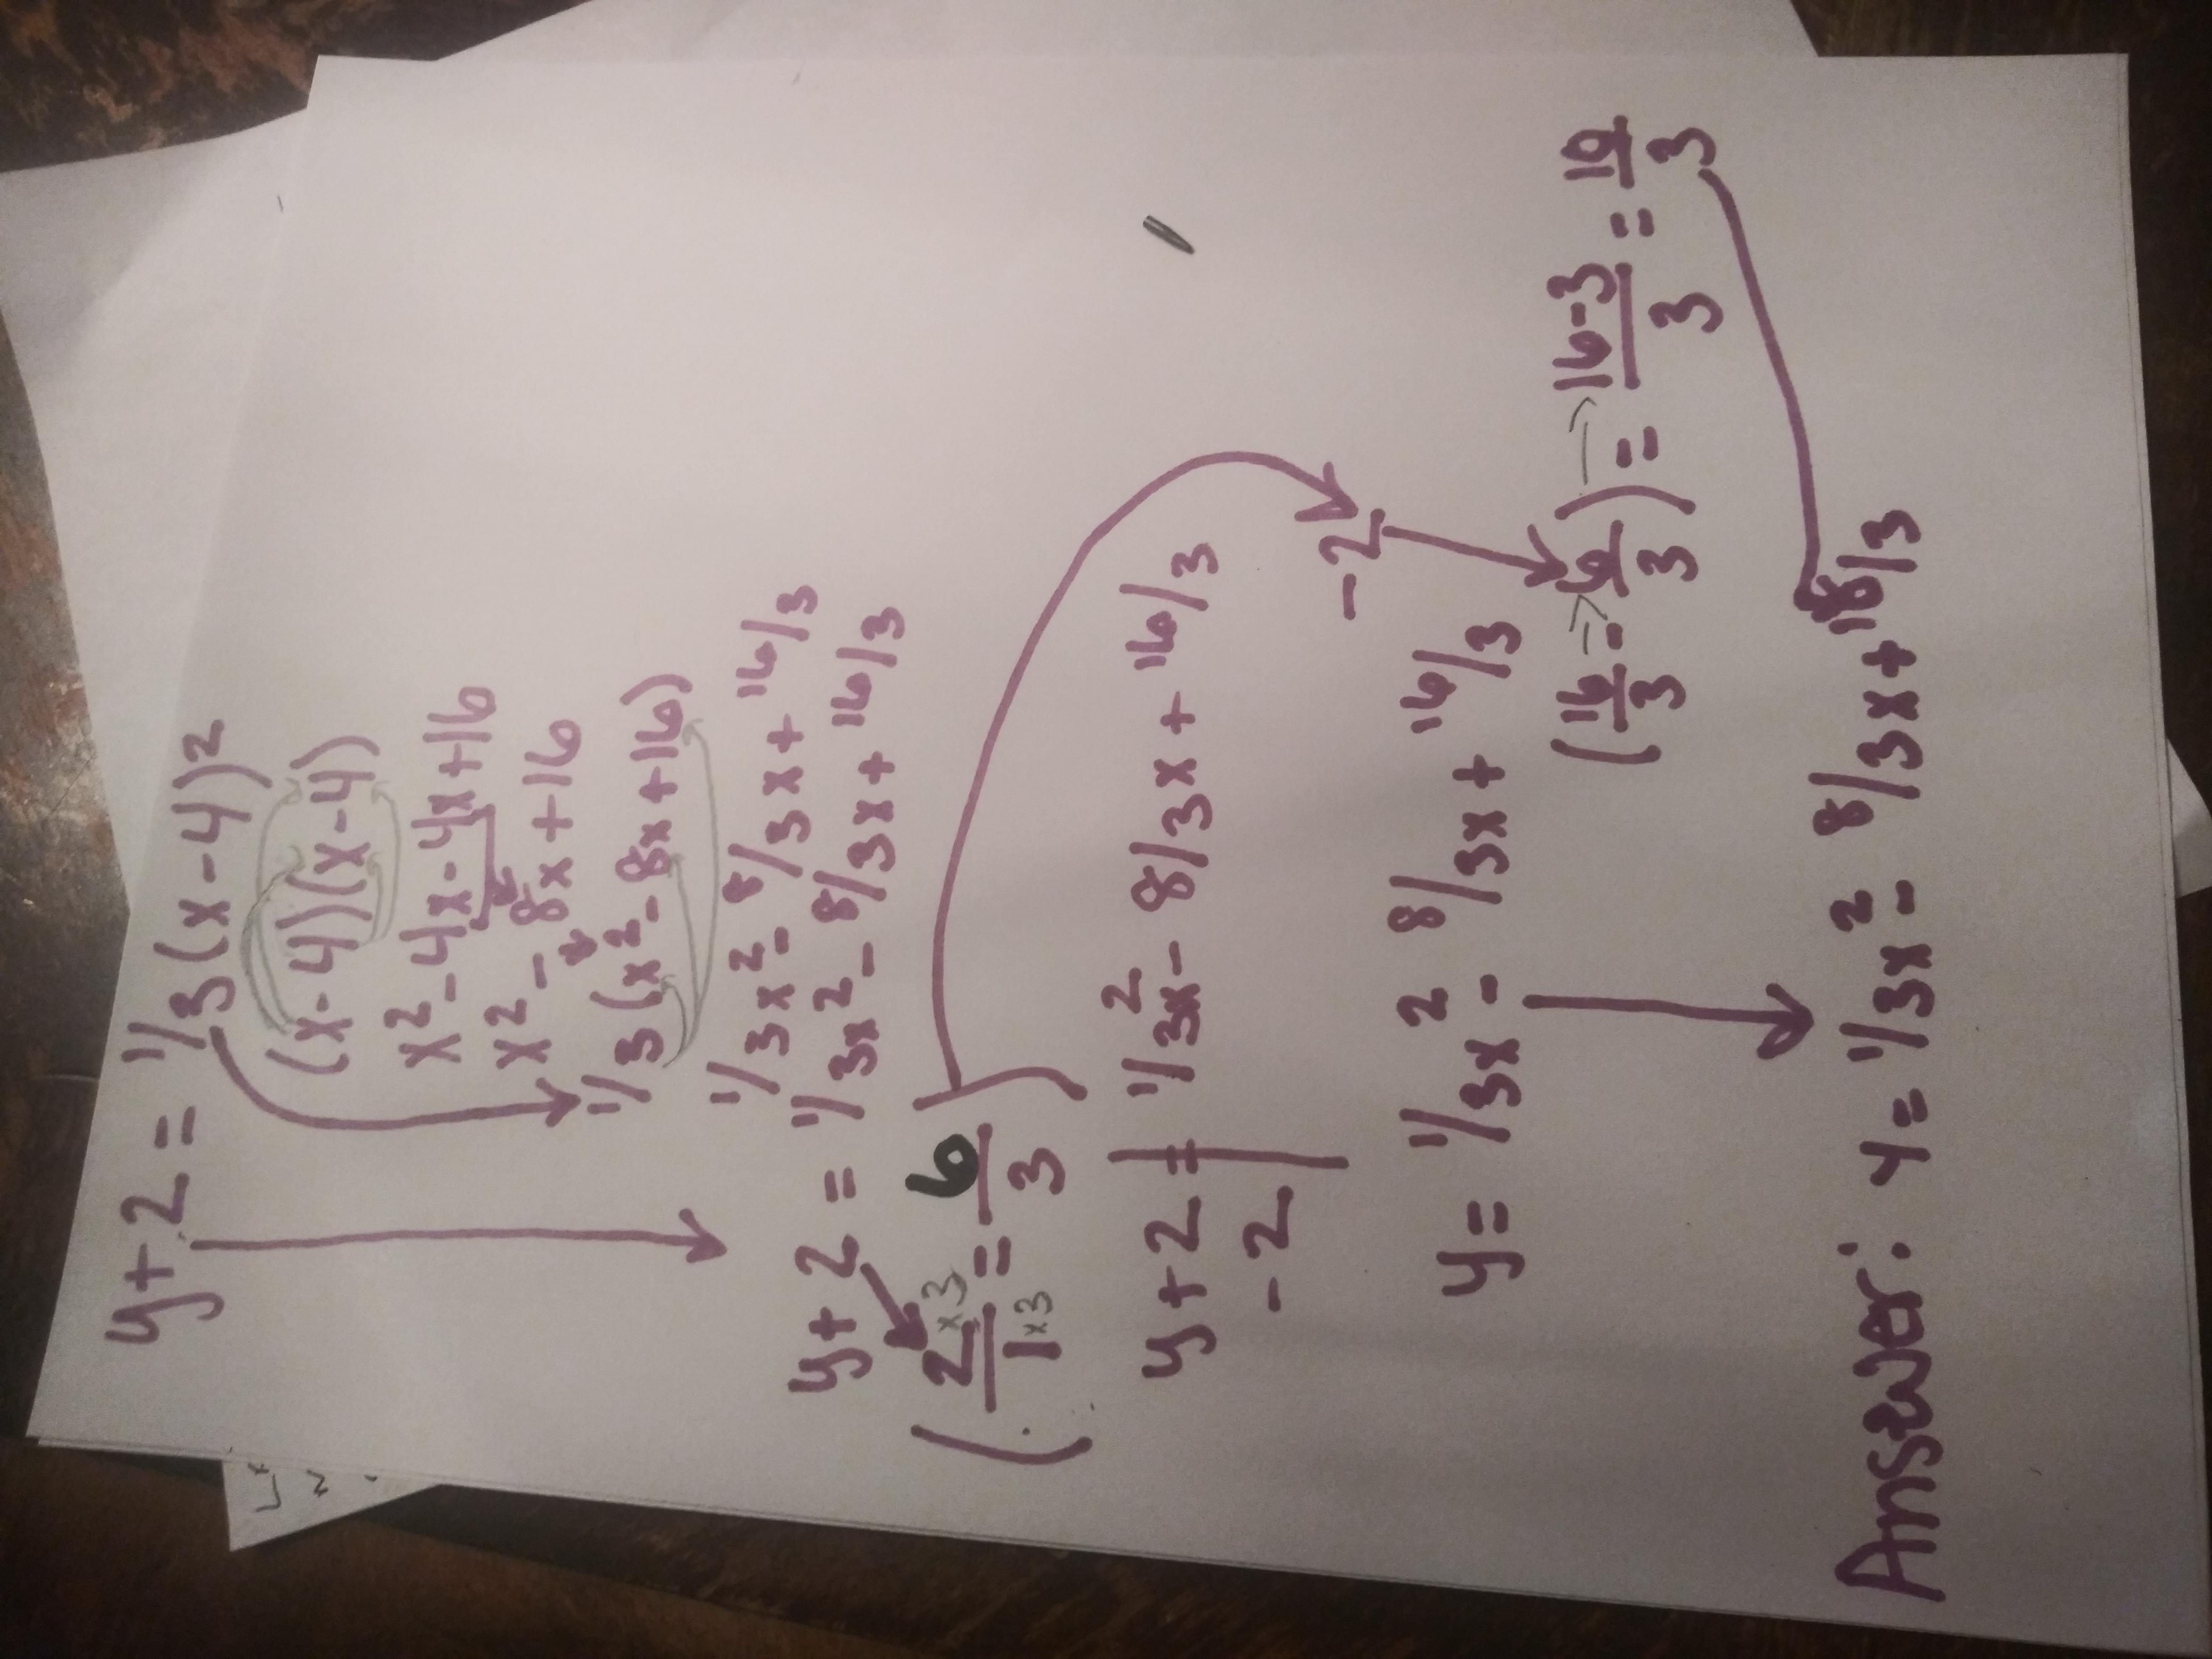 y+2 = 1/3(x-4)²
(x-4)(x-4)
x²-4x-4x+16
x²-8x+16
1/3(x²-8x+16)
1/3x²-8/3x+16/3
y+2 = 1/3x²-8/3x+16/3
(2×3/1×3 = 6/3)
y+2 = 1/3x²-8/3x+16/3
-2 -2
y= 1/3x²-8/3x+16/3
(16/3-6/3) = 16-3/3 = 10/3
Answer: y= 1/3x²-8/3x+ /3